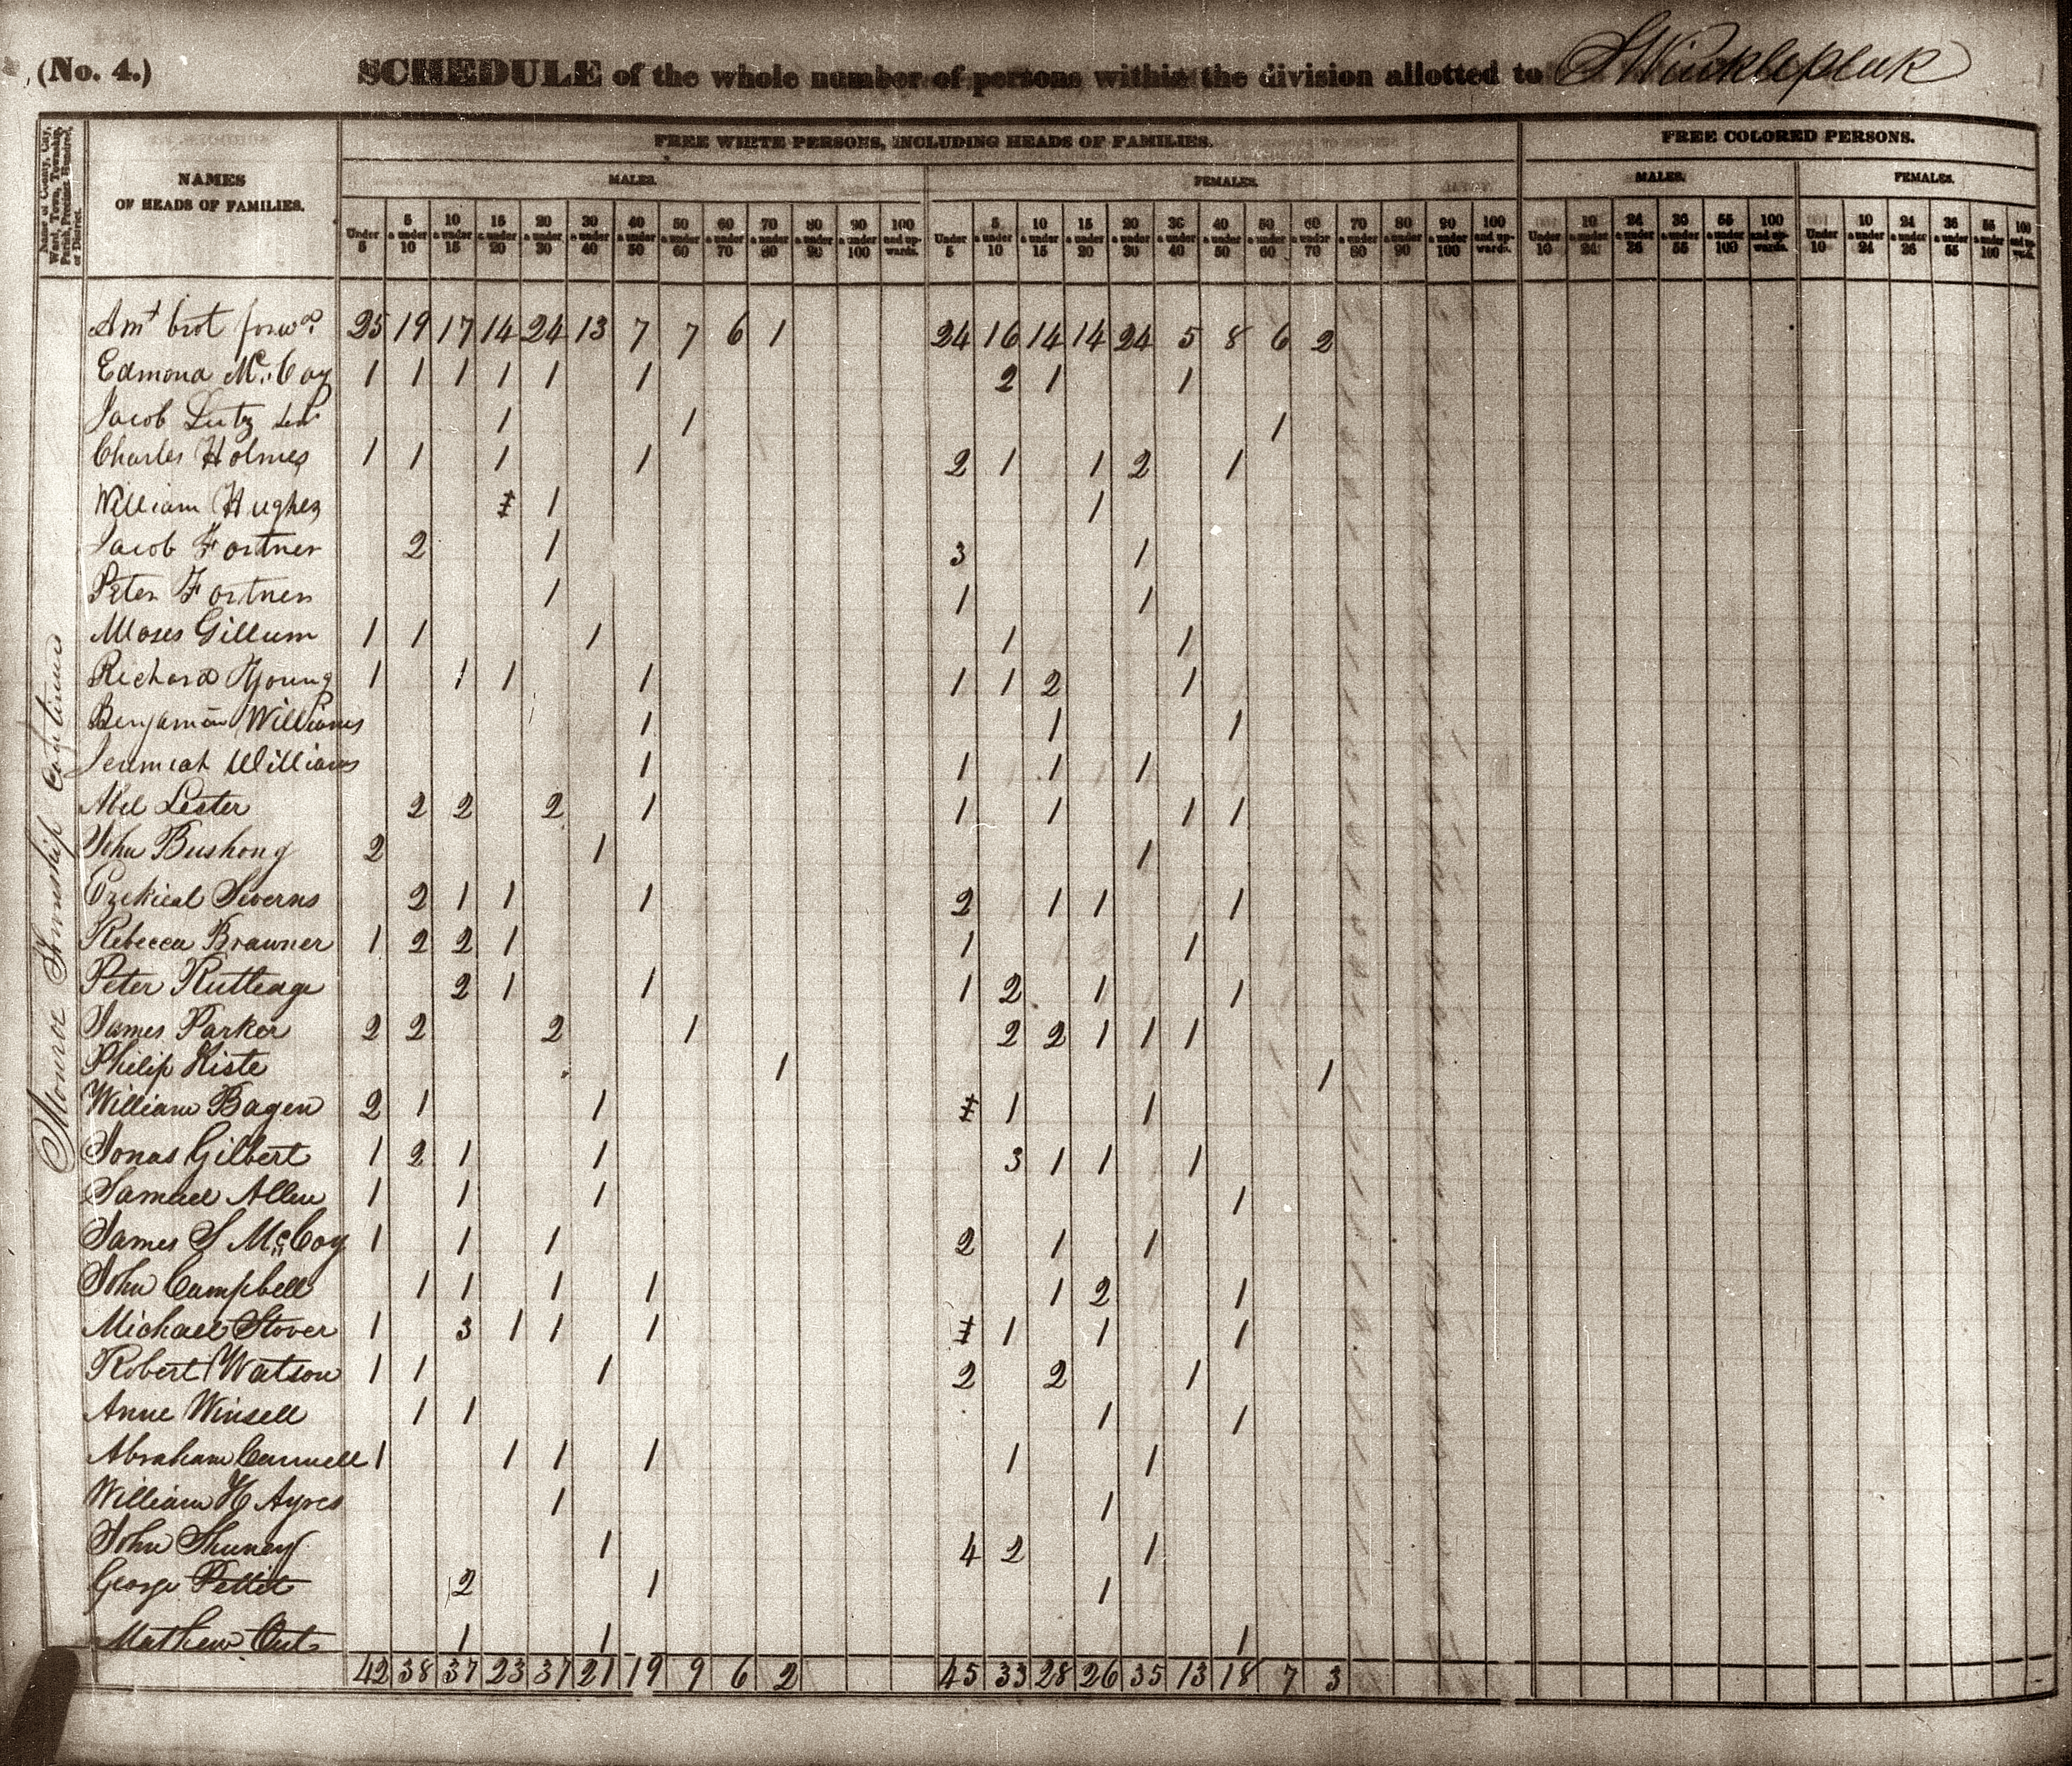 (No. 4.) SCHEDULE of the whole number of persons within the division allotted to
Name of County, City, Ward, Town, Township, Parish, Precinct, Hundred, or District.
NAMES OF HEADS OF FAMILIES.
FREE WHITE PERSONS, INCLUDING HEADS OF FAMILIES.
FREE COLORED PERSONS.
MALES. FEMALES. MALES. FEMALES.
Under 5 5 & under 10 10 & under 15 15 & under 20 20 & under 30 30 & under 40 40 & under 50 50 & under 60 60 & under 70 70 & under 80 80 & under 90 90 & under 100 100 and upwards. Under 5 5 & under 10 10 & under 15 15 & under 20 20 & under 30 30 & under 40 40 & under 50 50 & under 60 60 & under 70 70 & under 80 80 & under 90 90 & under 100 100 and upwards. Under 10 10 & under 24 24 & under 36 36 & under 55 55 & under 100 100 and upwards. Under 10 10 & under 24 24 & under 36 36 & under 55 55 & under 100 100 and upwd.
Monroe Township Continued
Amt brot forwd. 25 19 17 14 24 13 7 7 6 1 24 16 14 14 24 5 8 6 2
Edmond McCoy 1 1 1 1 1 1 2 1 1
Jacob Lutz Senr 1 1 1
Charles Holmes 1 1 1 1 2 1 1 2 1
William Hughes 1 1
Jacob Fortner 2 1 3 1
Peter Fortner 1 1 1
Moses Gillum 1 1 1 1 1
Richard Young 1 1 1 1 1 1 2 1
Benjamin Williams 1 1 1
Jerimiah Williams 1 1 1 1
Abel Lester 2 2 2 1 1 1 1 1
John Bushong 2 1 1
Ezekieal Severns 2 1 1 1 2 1 1 1
Rebecca Brawner 1 2 2 1 1 1
Peter Rutleage 2 1 1 1 2 1 1
James Parker 2 2 2 1 2 2 1 1 1
Philip Kiste 1 1
William Bagen 2 1 1 1 1
Jonas Gilbert 1 2 1 1 3 1 1 1
Samuel Allen 1 1 1 1
James S McCoy 1 1 1 2 1 1
John Campbell 1 1 1 1 1 2 1
Michael Stover 1 3 1 1 1 1 1 1
Robert Watson 1 1 1 2 2 1
Anne Winsell 1 1 1 1
Abraham Cannell 1 1 1 1 1 1
William H Ayres 1 1
John Shuney 1 4 2 1
George Pettit 2 1 1
Mathew Out 1 1 1
42 38 37 23 37 21 19 9 6 2 45 33 28 26 35 13 18 7 3